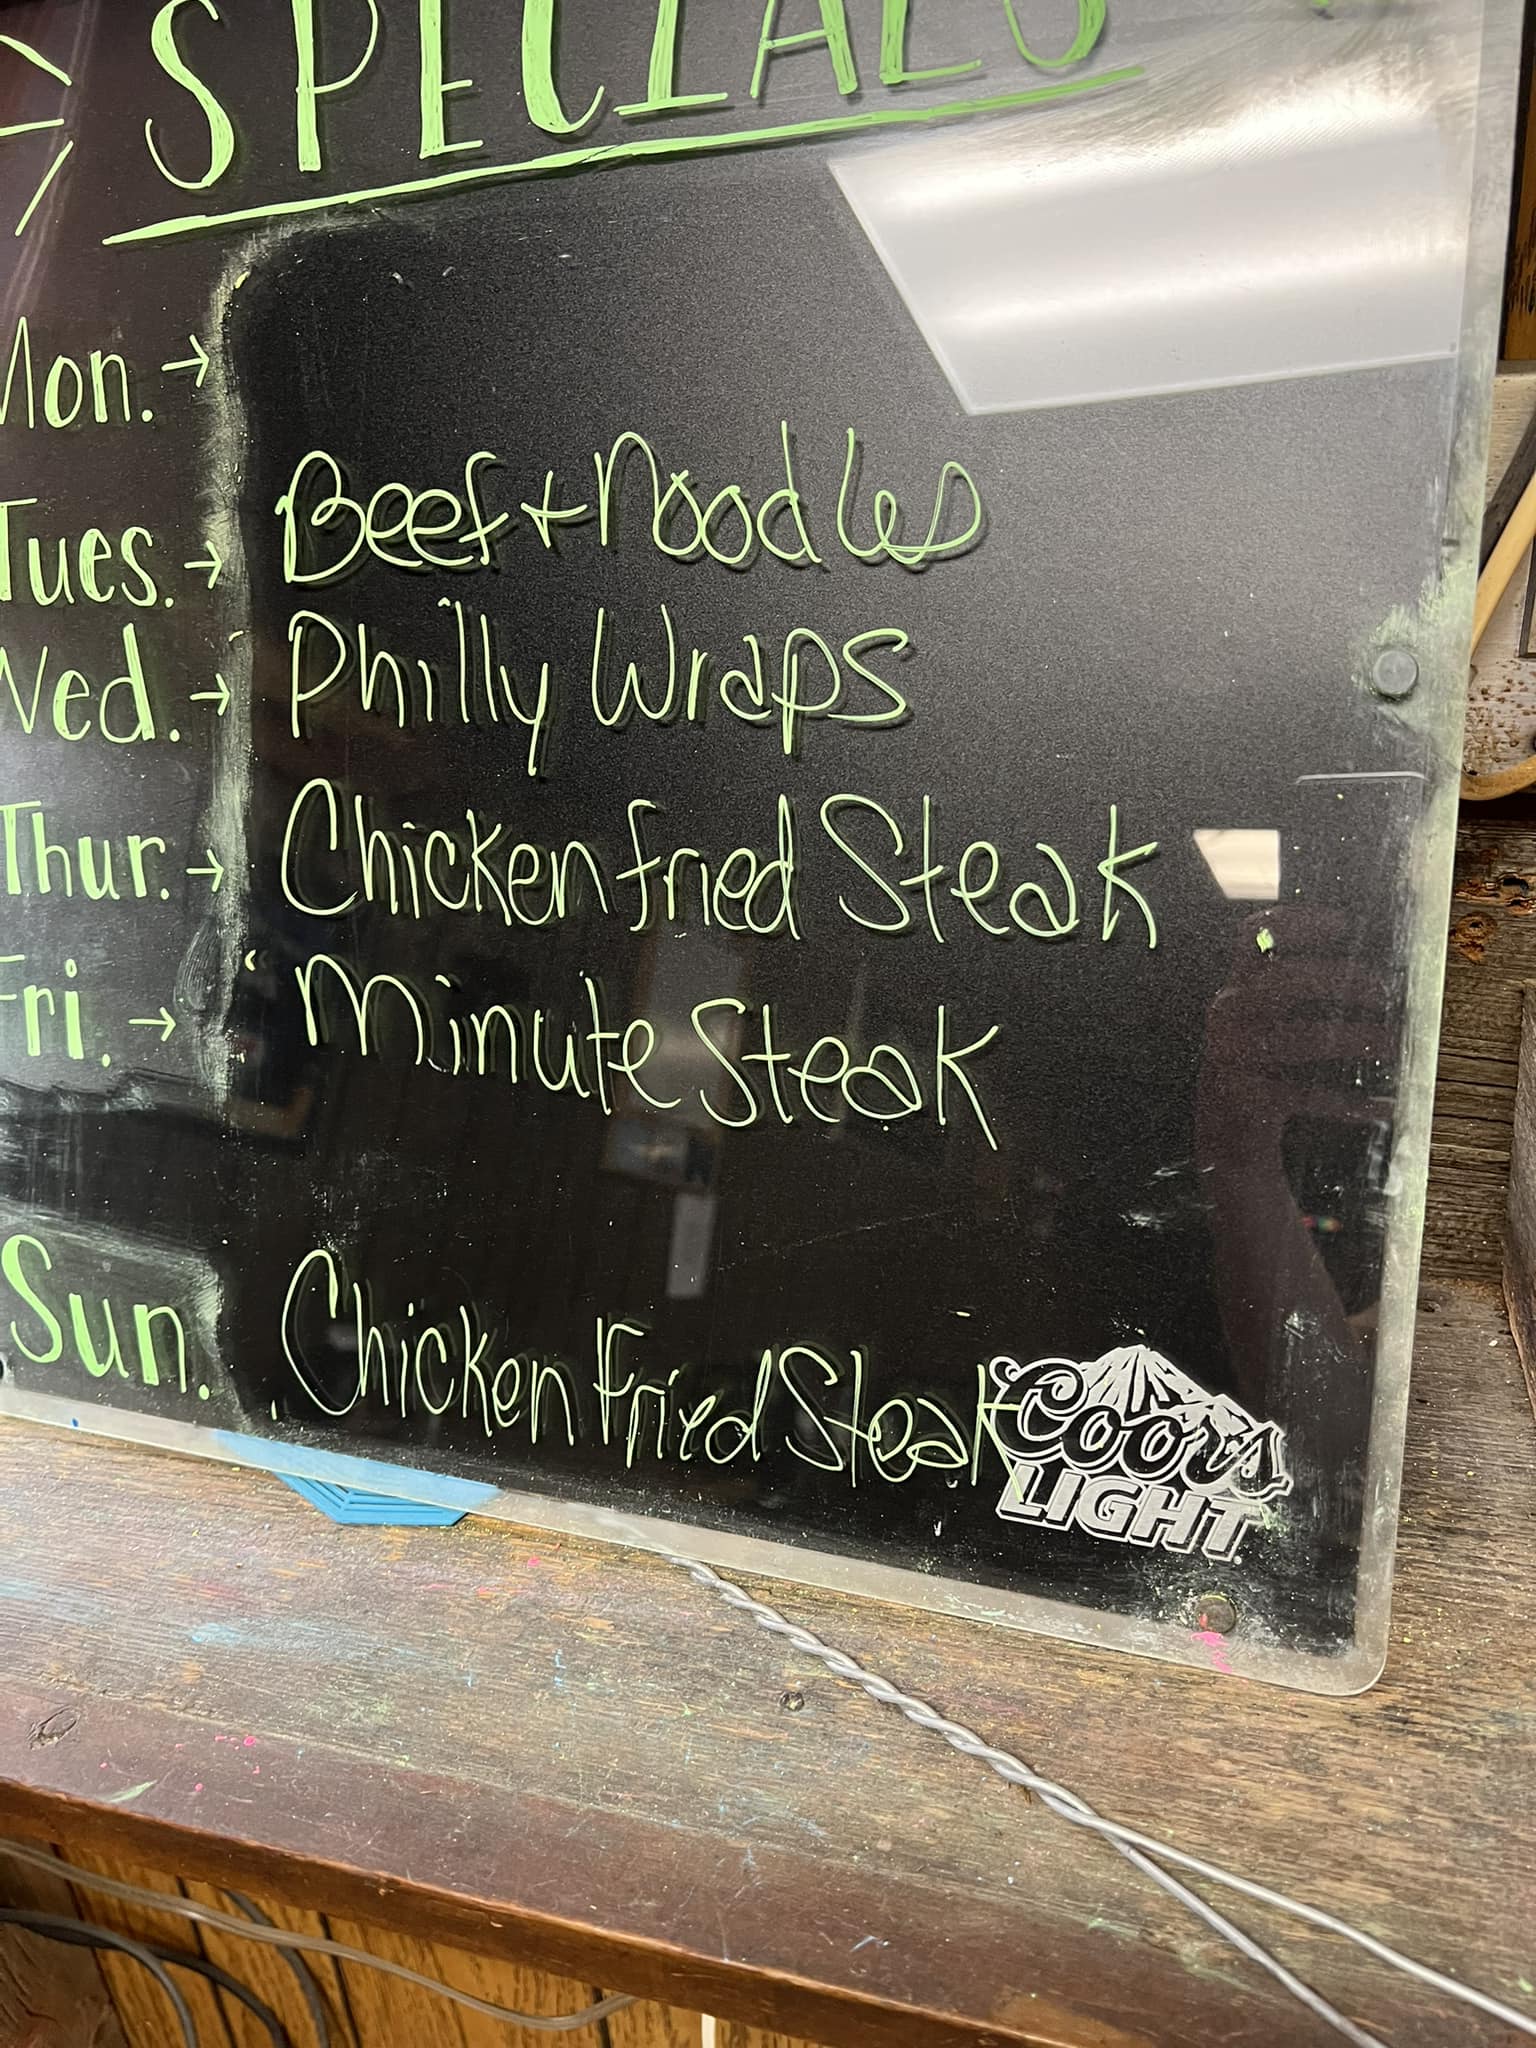 SPECIALS
Mon. →
Tues. → Beef + Noodles
Wed. → Philly Wraps
Thur. → Chicken fried Steak
Fri. → Minute Steak
Sun. Chicken Fried Steak
Coors
LIGHT